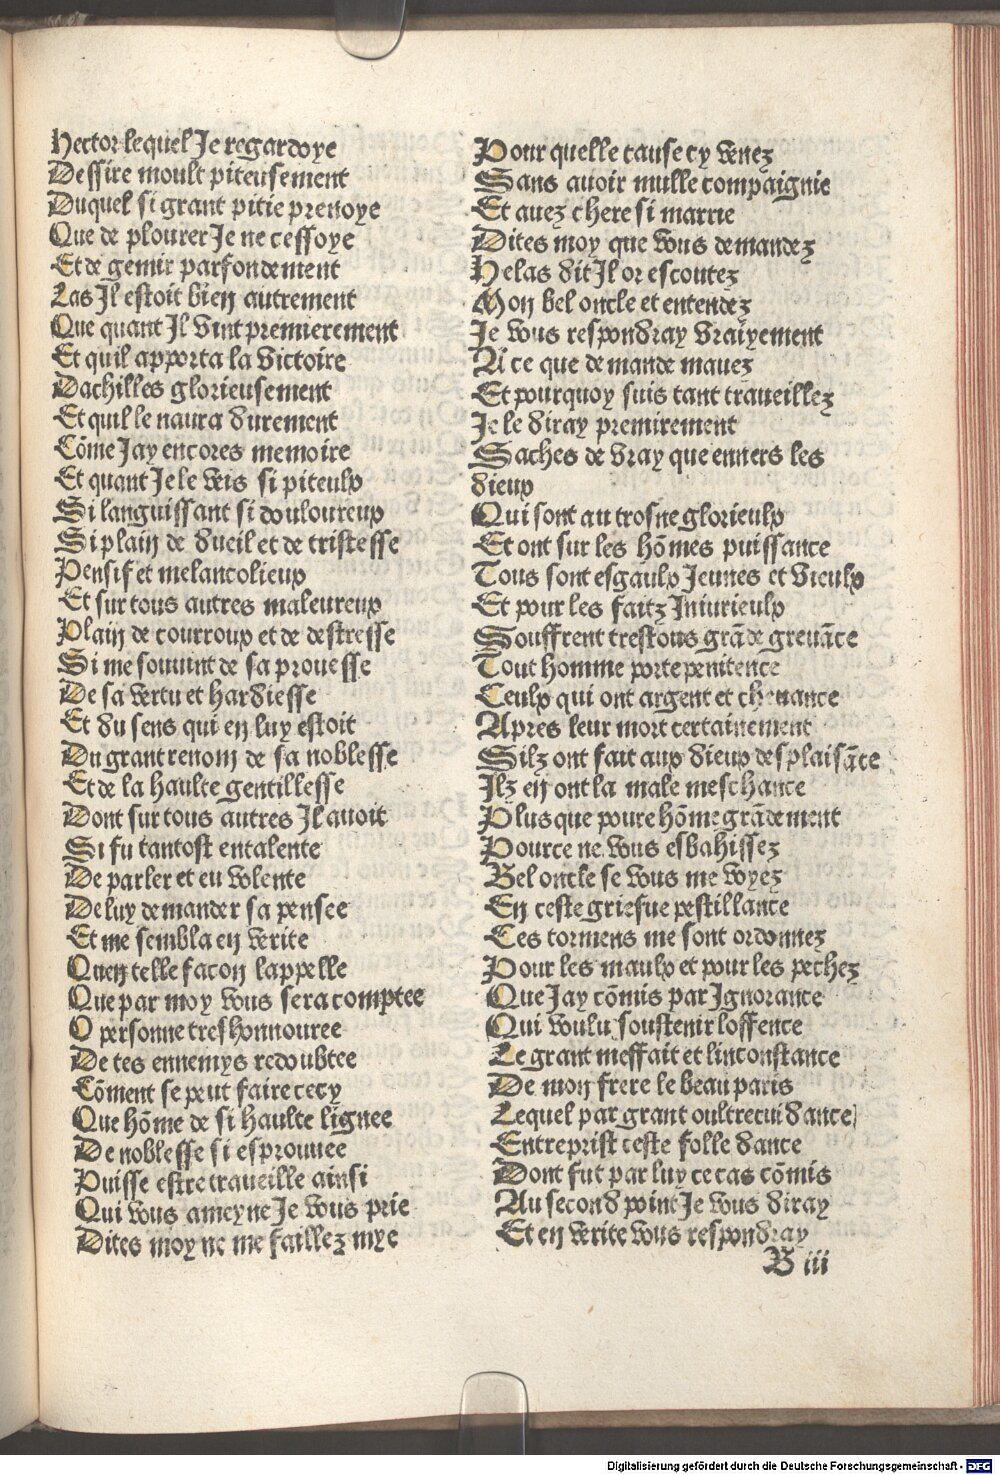 Hector lequel Je regardoye
Dessire moult piteusement
Duquel si grant pitie prenoye
Que de plourer Je ne cessoye
Et de gemir parfondement
Las Il estoit bien autrement
Que quant Il vint premierement
Et quil apporta la victoire
Dachilles glorieusement
Et quil le naura durement
Cõme Jay encores memoire
Et quant Je le veis si piteulx
Si languissant si douloureux
Si plain de dueil et de tristesse
Pensif et melancolieux
Et sur tous autres maleureux
Plain de courroux et de destresse
Si me souuint de sa prouesse
De sa vertu et hardiesse
Et du sens qui en luy estoit
Du grant renom de sa noblesse
Et de la haulte gentillesse
Dont sur tous autres Il auoit
Si fu tantost entalente
De parler et eu volente
De luy demander sa pensee
Et me sembla en verite
Quen telle facon lappelle
Que par moy vous sera comptee
O personne tres honnouree
De tes ennemys redoubtee
Cõment se peut faire cecy
Que hõme de si haulte lignee
De noblesse si esprouuee
Puisse estre traueille ainsi
Qui vous ameyne Je vous prie
Dites moy ne me faillez mye
Pour quelle cause cy venez
Sans auoir nulle compaignie
Et auez chere si marrie
Dites moy que vous demandez
Helas dit Il or escoutez
Mon bel oncle et entendez
Je vous respondray vrayement
A ce que demande mauez
Et pourquoy suis tant traueillez
Je le diray premirement
Saches de vray que enuers les
dieux
Qui sont au trosne glorieulx
Et ont sur les hõmes puissance
Tous sont esgaulx Jeunes et vieulx
Et pour les faitz Iniurieulx
Souffrent trestous grãde greuãce
Tout homme porte penitence
Ceulx qui ont argent et cheuance
Apres leur mort certainement
Silz ont fait aux dieux desplaisãce
Ilz en ont la male meschance
Plus que poure hõme grãdement
Pource ne vous esbahissez
Bel oncle se vous me voyez
En ceste griefue pestillance
Ces tormens me sont ordonnez
Pour les maulx et pour les pechez
Que Jay cõmis par Ignorance
Qui voulu soustenir loffence
Le grant meffait et linconstance
De mon frere le beau paris
Lequel par grant oultrecuidance
Entreprist ceste folle dance
Dont fut par luy ce cas cõmis
Au second point Je vous diray
Et en verite vous respondray
B iii
Digitalisierung gefördert durch die Deutsche Forschungsgemeinschaft - DFG